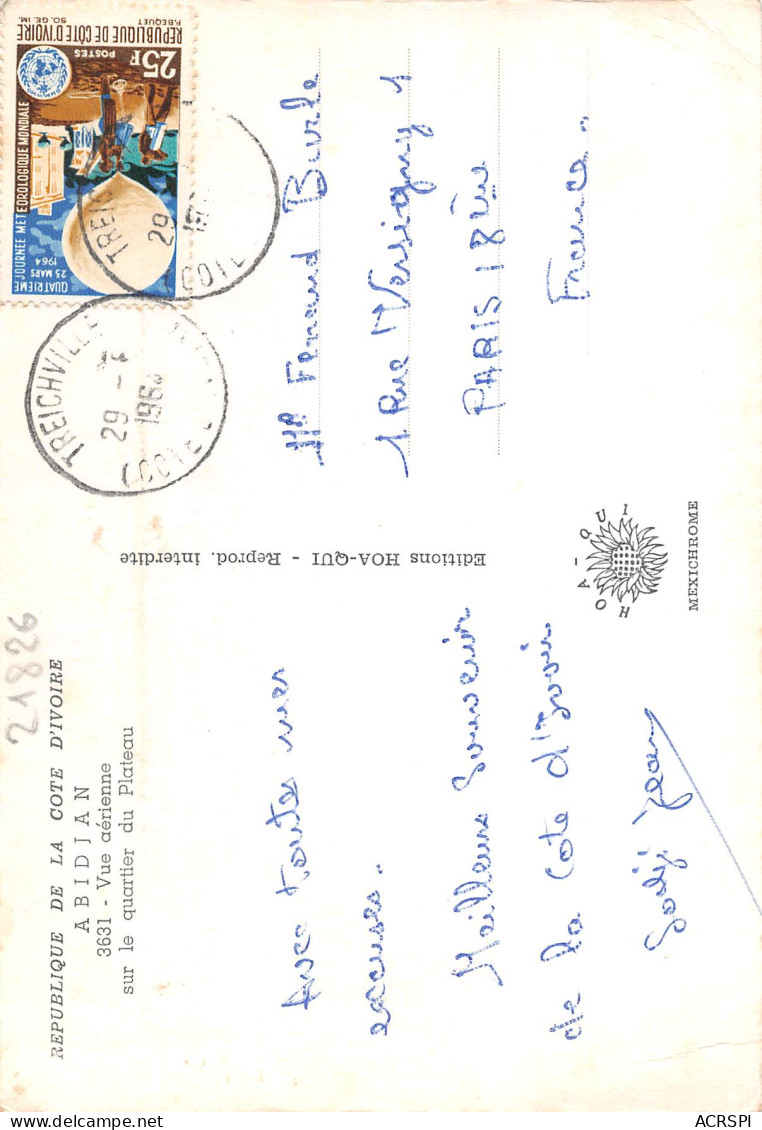 REPUBLIQUE DE LA COTE D'IVOIRE
ABIDJAN
3631 - Vue aérienne
sur le quartier du Plateau
21826
Avec toutes mes
excuses.
Meilleurs Souvenir
de la Cote d'Ivoir
Jean
Editions HOA-QUI - Reprod. interdite
HOA-QUI
MEXICHROME
QUATRIEME
JOURNEE METEOROLOGIQUE MONDIALE
25 MARS
1964
25F
POSTES
REPUBLIQUE DE CÔTE D'IVOIRE
P.BEQUET
SO.GE.IM.
TREICHVILLE
29 - 
196
COTE
TREIC
29
19
COTE
Mr Fernand Burle
1 Rue Versigny 1
PARIS 18ème
France.
ACRSPI